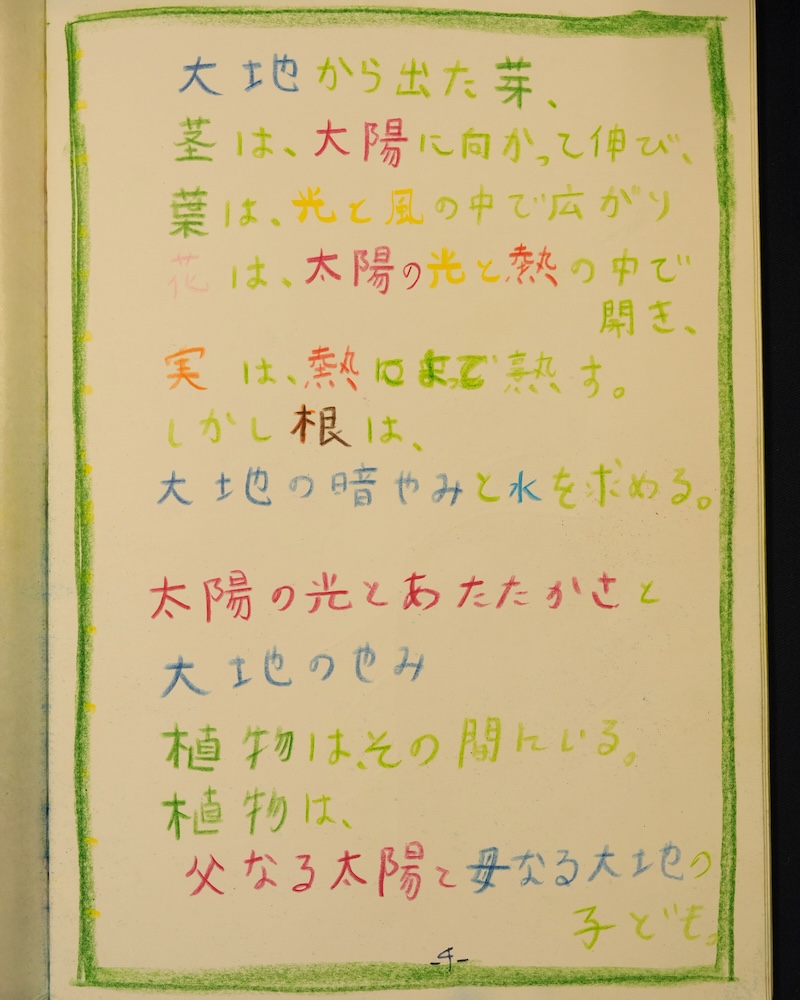 大地から出た芽、
茎は、太陽に向かって伸び、
葉は、光と風の中で広がり
花は、太陽の光と熱の中で
開き、
実は、熱によって熟す。
しかし根は、
大地の暗やみと水を求める。
太陽の光とあたたかさと
大地のやみ
植物は、その間にいる。
植物は、
父なる太陽と母なる大地の
子ども。
-4-